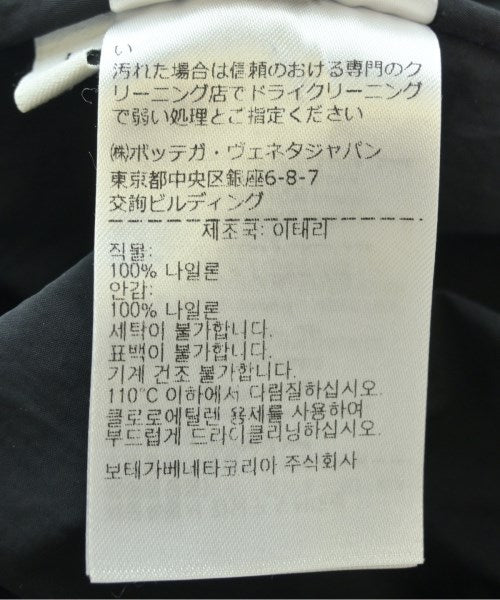 い
汚れた場合は信頼のおける専門のク
リーニング店でドライクリーニング
で弱い処理とご指定ください
㈱ボッテガ・ヴェネタジャパン
東京都中央区銀座6-8-7
交詢ビルディング
제조국: 이태리
직물:
100% 나일론
안감:
100% 나일론
세탁이 불가합니다.
표백이 불가합니다.
기계 건조 불가합니다.
110°C 이하에서 다림질하십시오.
클로로에틸렌 용제를 사용하여
부드럽게 드라이클리닝하십시오.
보테가베네타코리아 주식회사